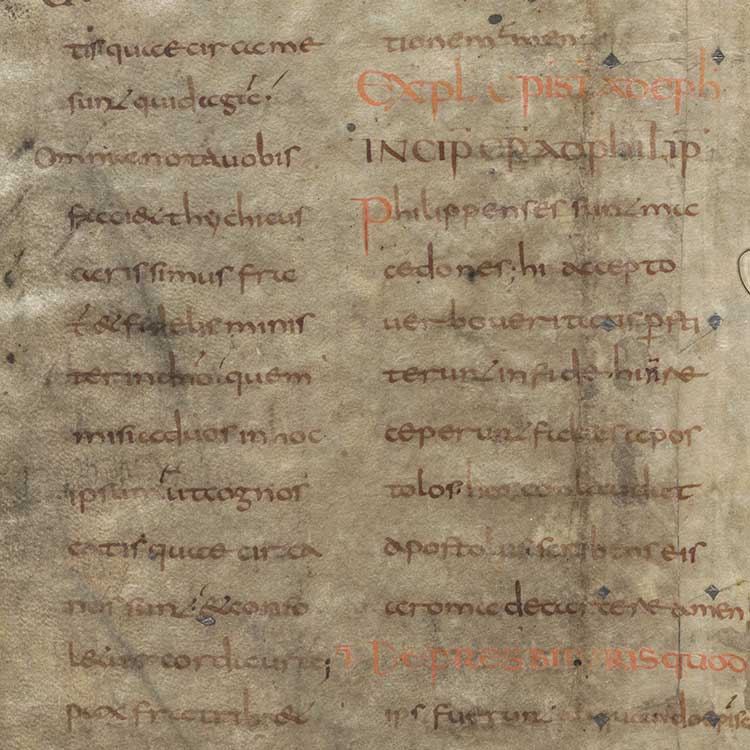 tis quae circa me
sunt quid agā.
Omnia nota vobis
faciet thychicus
carissimus fra
t̄ & fidelis minis
ter in dn̄o quem
misi ad vos in hoc
ipsum ut cognos
catis quae circa
nos sunt & conso
letur corda vestra;
pax fratrib; &
tionem
Expl. epist ad eph
INCIP EP AD philip
Philippenses sunt mac
cedones; hi accepto
verbo veritatis ꝑsti
terunt in fide hi n̄ re
ceperunt falsos apos
tolos; hos conlaudat
apostolus scribens eis
a roma de carcere amen
DE PRESBITERIS quod
ips fuerunt aliquando episc